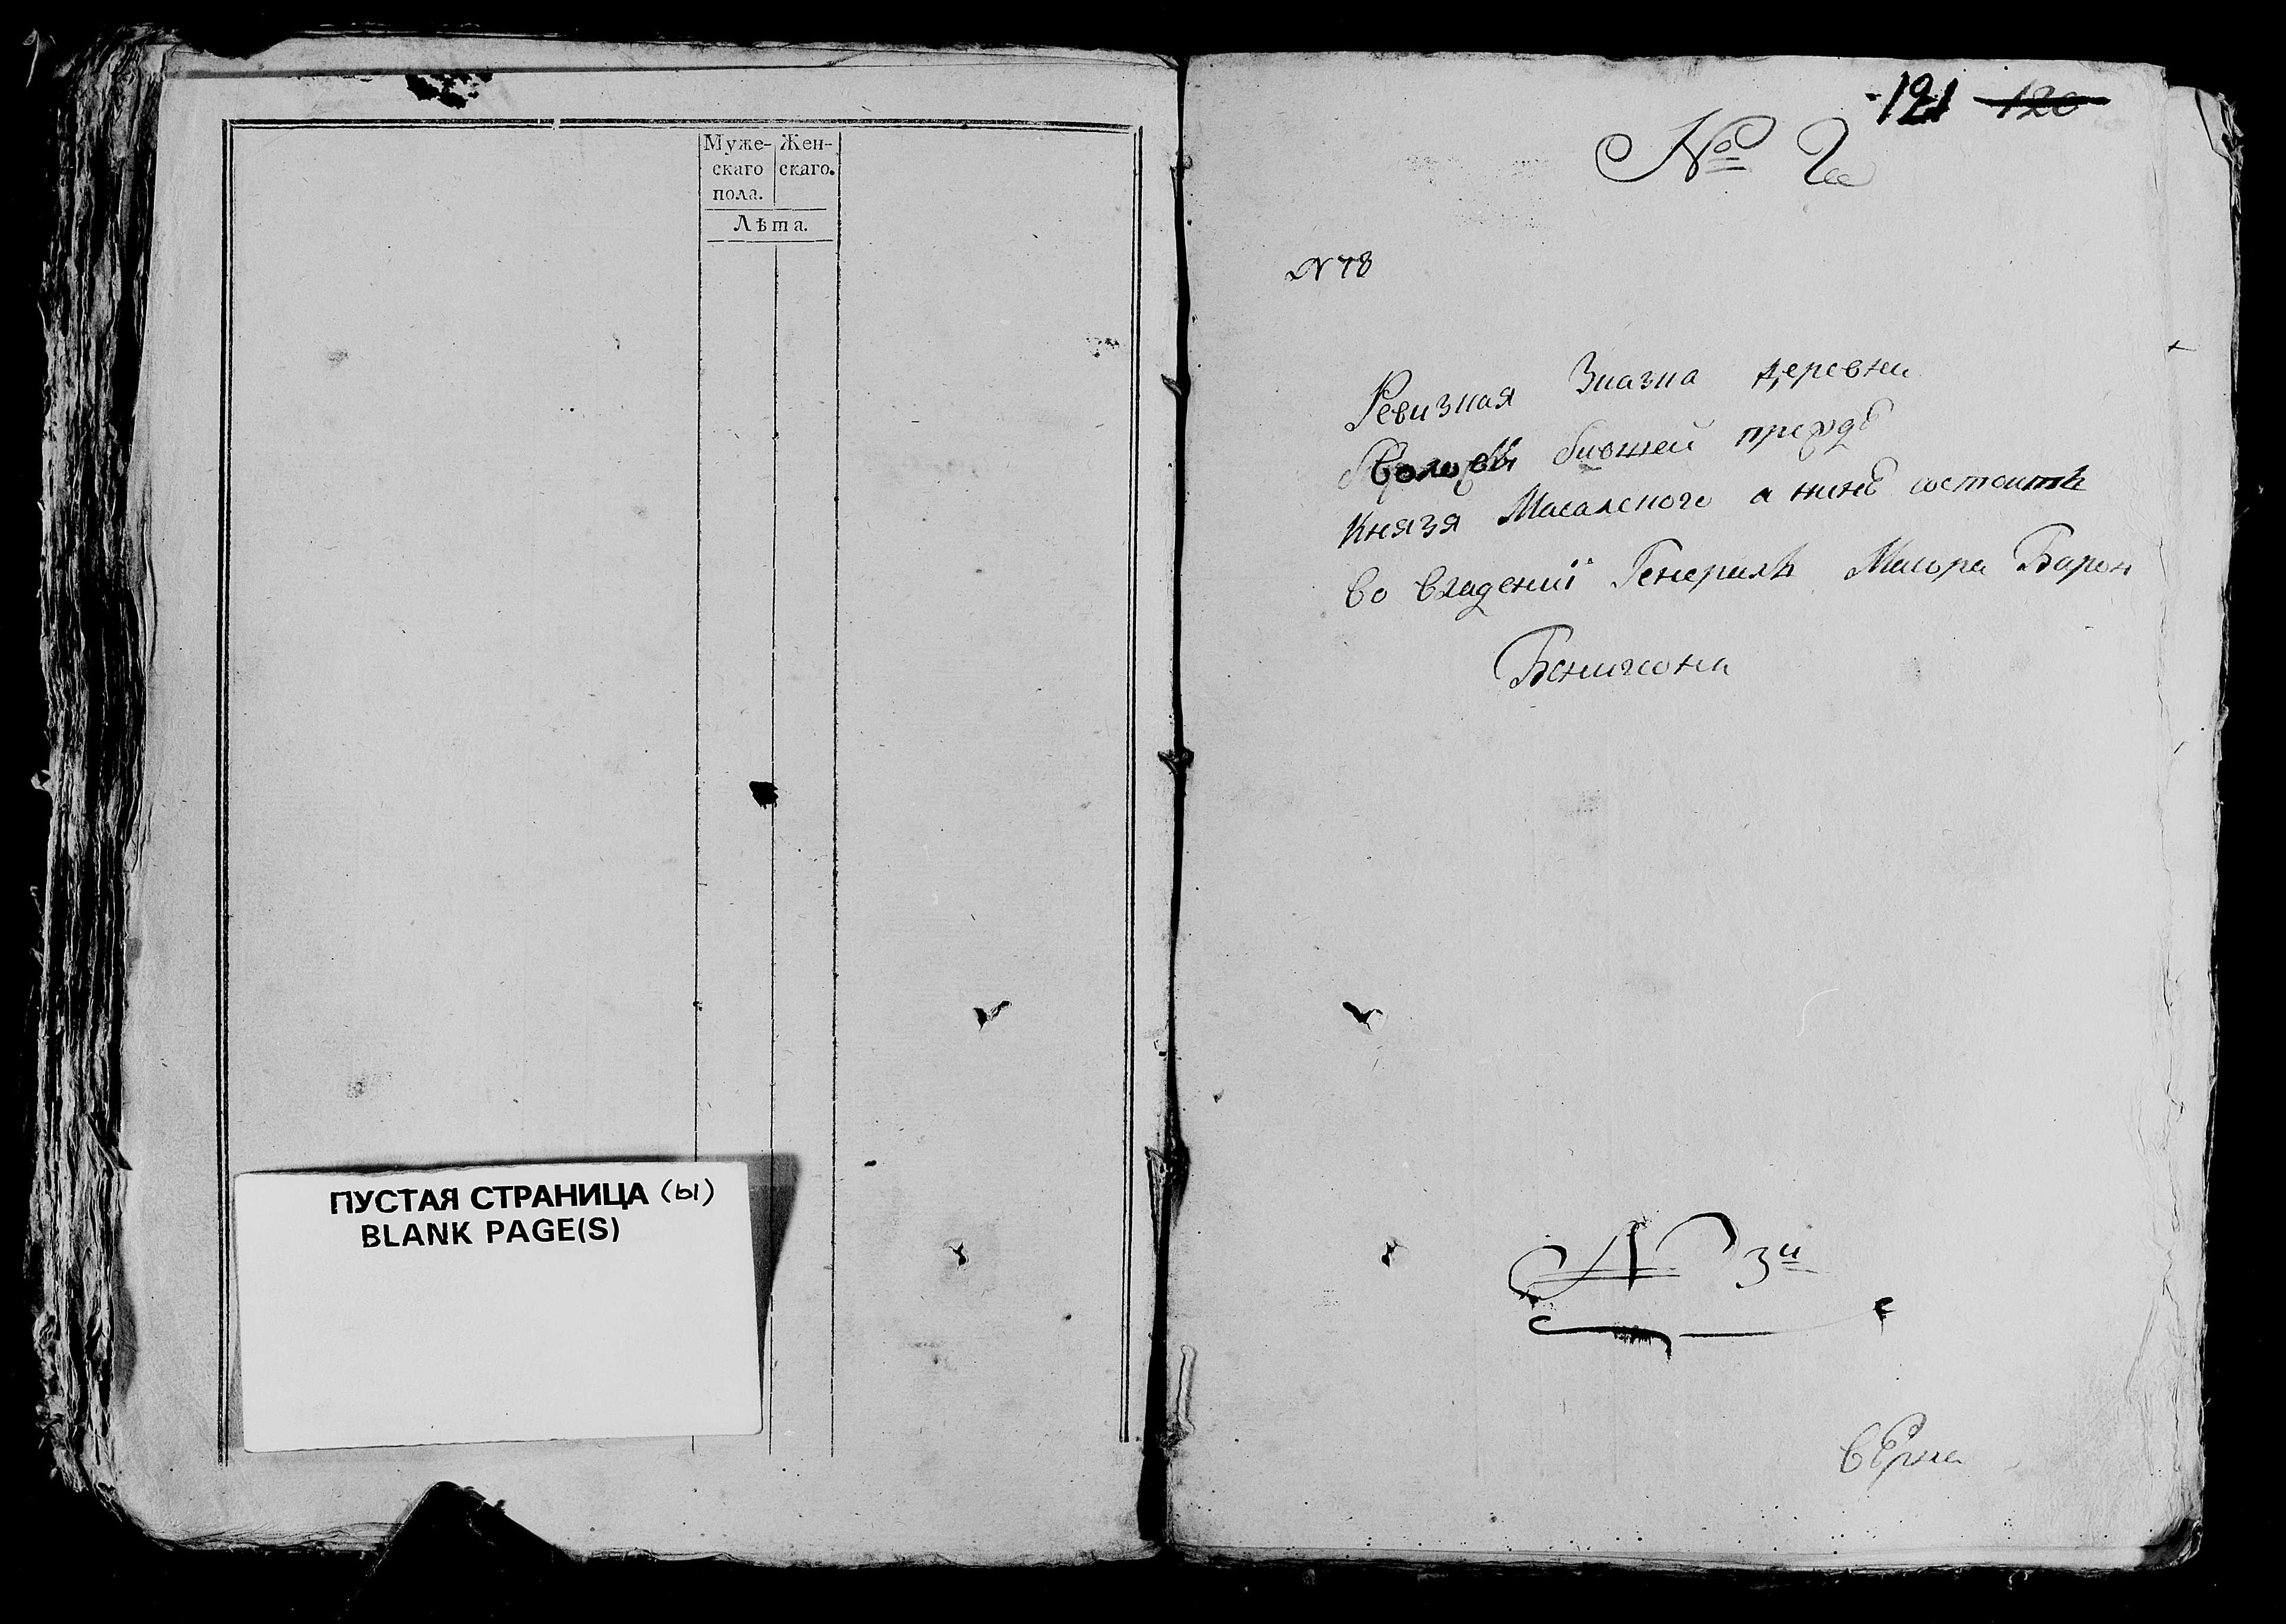 Муже- Жен-
скаго скаго.
пола.
Лѣта.
ПУСТАЯ СТРАНИЦА (Ы)
BLANK PAGE(S)
121 120
№ 2
N 78
Ревизная Зказка деревни
бившей преждѣ
Князя Масалского а нинѣ состоитъ
во владениі Генералъ Маиора Барон
Бенигсона
N 3й
вѣрна